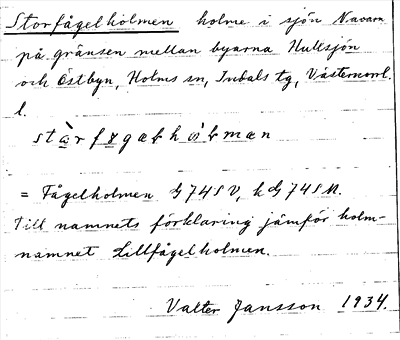 Storfågelholmen holme i sjön Navarn
på gränsen mellan byarna Hullsjön
och Östbyn, Holms sn, Indals tg, Västernorrl.
l.
= Fågelholmen G 74 S V, k G 74 S M.
Till namnets förklaring jämför holm-
namnet Lillfågelholmen.
Valter Jansson 1934.